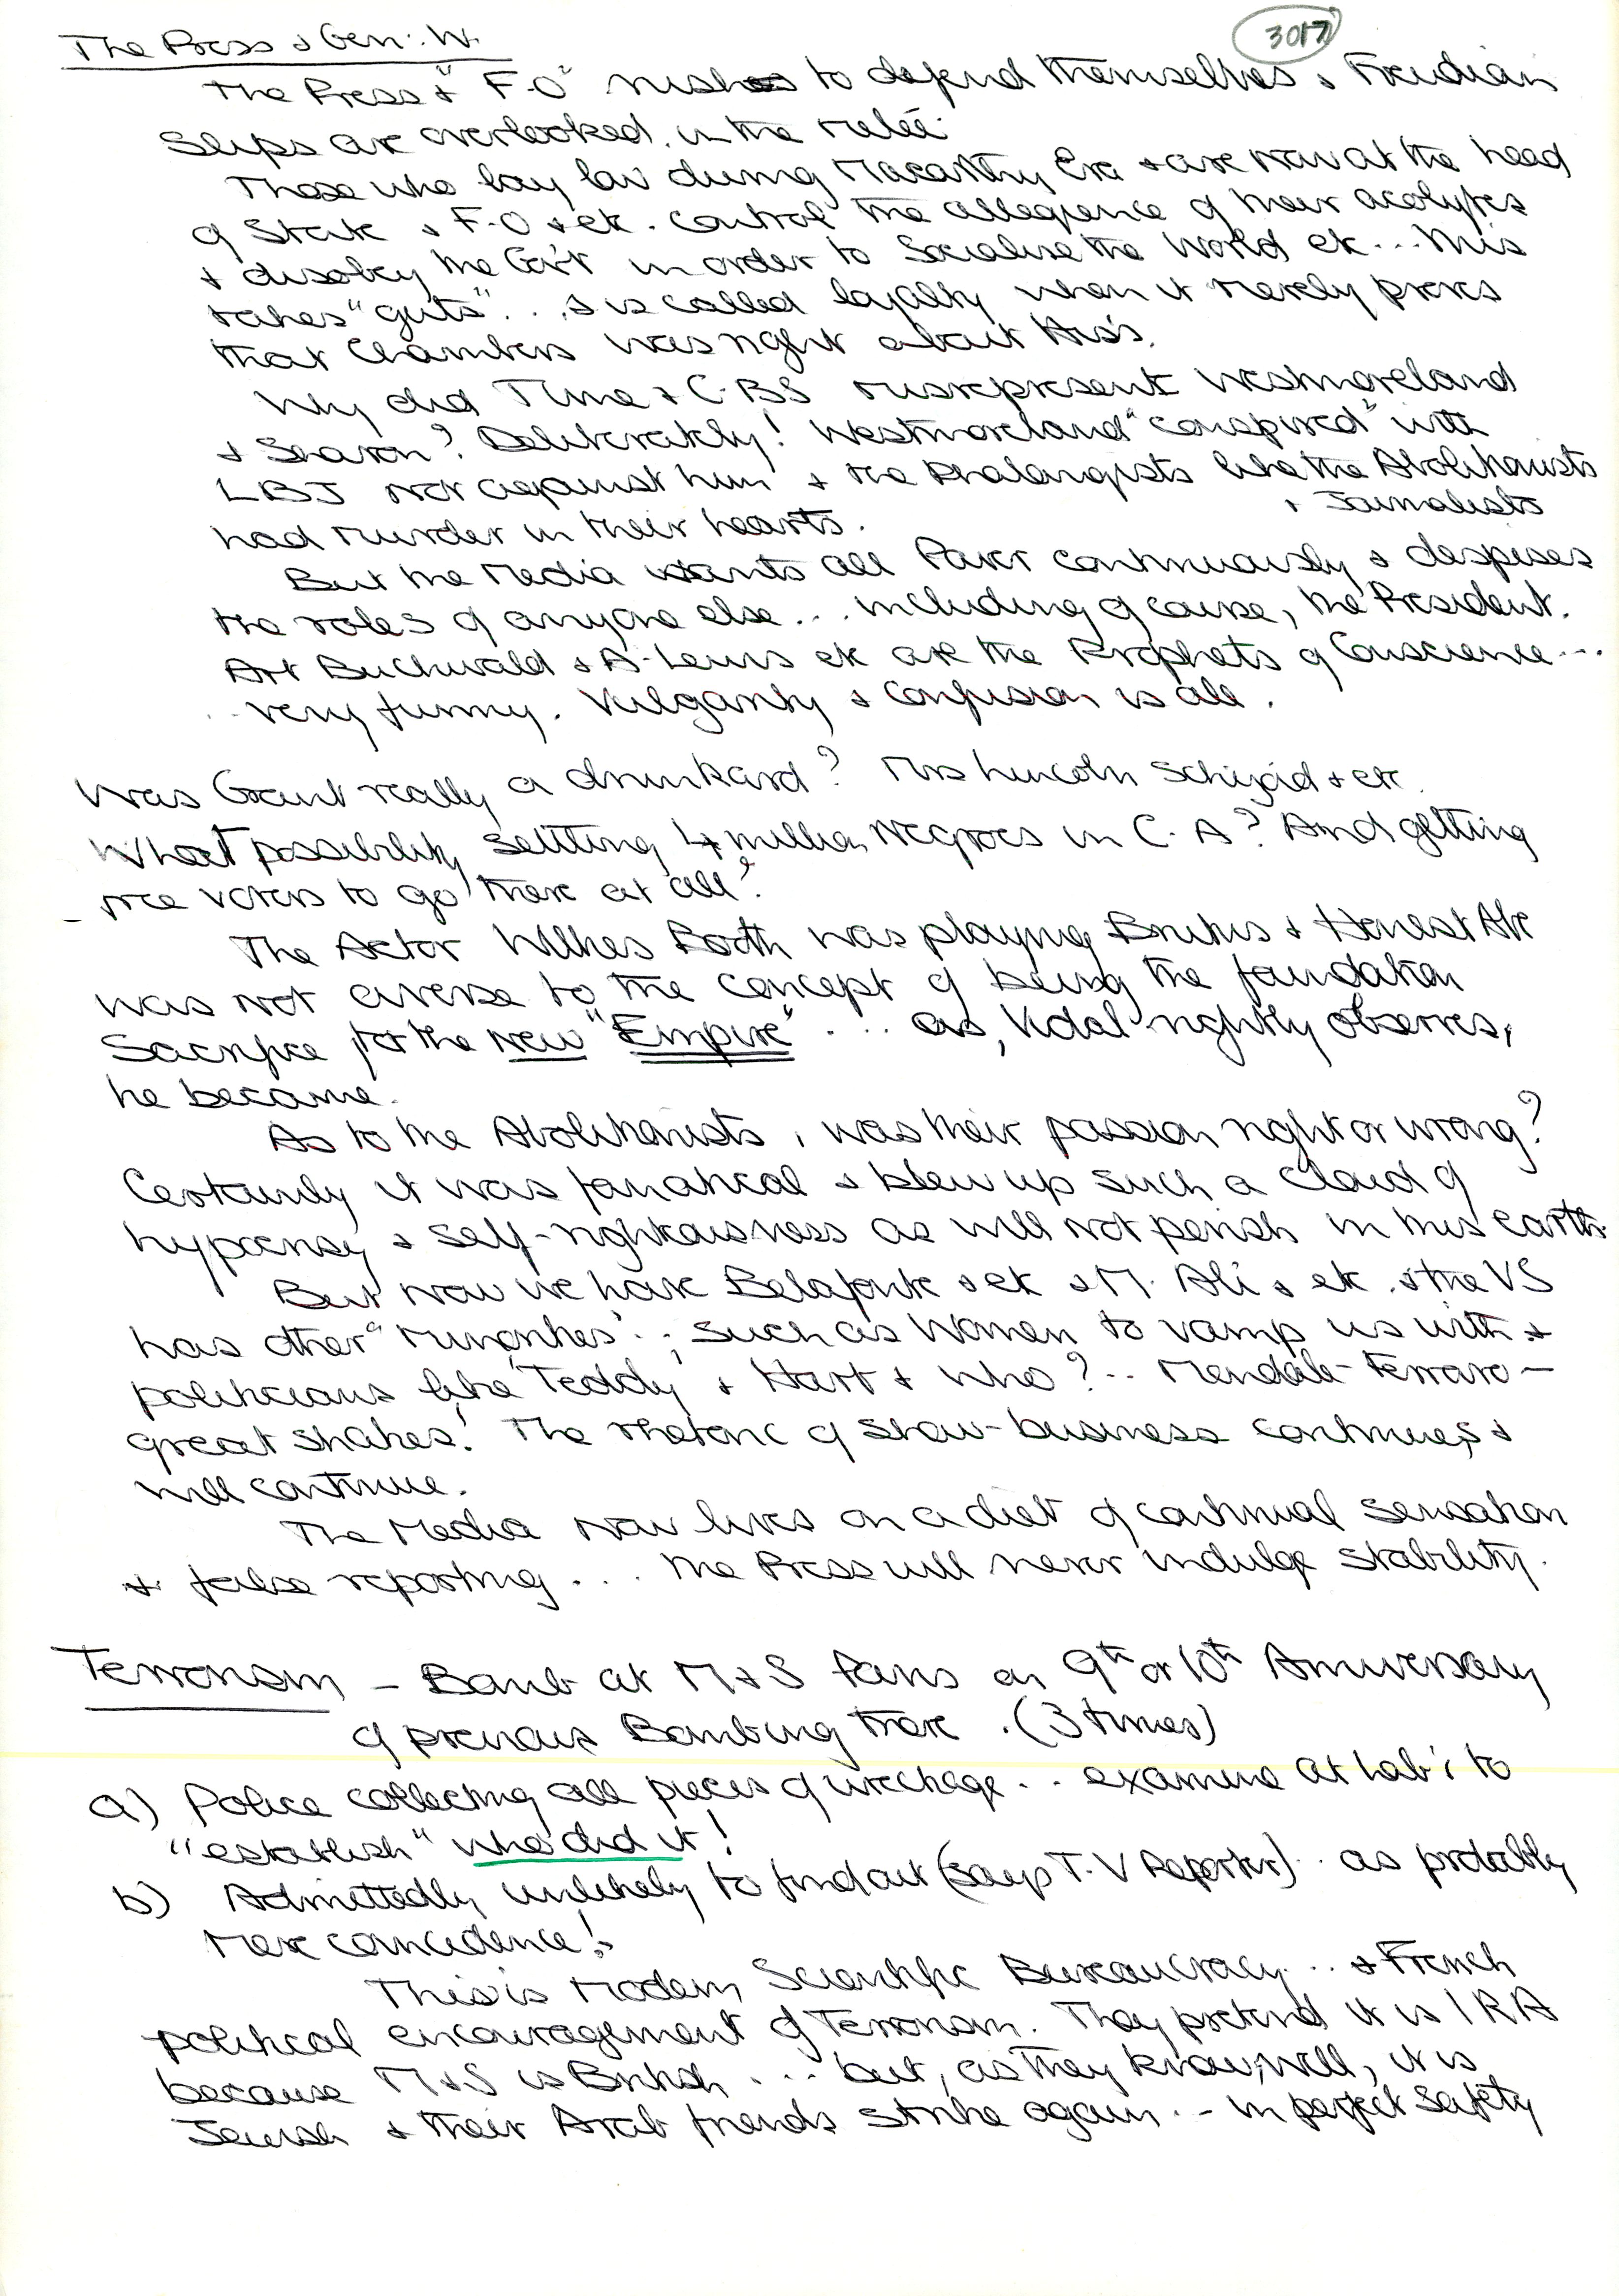 3017
The Press & Gen: W.
The Press & "F.O" rushes to defend themselves & Freudian
Slips are overlooked. in the melée.
Those who lay low during Macarthy Era & are now at the head
of State & F.O & etc. control the allegience of their acolytes
& disobey the Gov't in order to Socialise the World etc... This
takes "guts"... & is called loyalty when it merely proves
that Chambers was right about Hiss.
Why did Time & C.BS misrepresent Westmoreland
& Sharon? Deliberately! Westmoreland "conspired" with
LBJ not against him & the Phalangists like the Abolitionists
& Journalists
had murder in their hearts.
But the Media wants all Power continuously & despises
the roles of anyone else... including of course, the President.
Art Buchwald & A. Lewis etc are the Prophets of Conscience...
.. very funny. Vulgarity & confusion is all.
Was Grant really a drunkard? Mrs Lincoln Schizoid & etc.
What possibility settling 4 million Negroes in C.A? And getting
free voters to go there at all?
The Actor Wilkes Booth was playing Brutus & Honest Abe
was not averse to the concept of being the foundation
Sacrifice for the New "Empire"... as, Vidal rightly observes,
he became.
As to the Abolitionists, was their passion right or wrong?
Certainly it was fanatical & blew up such a Cloud of
hypocrisy & self-righteousness as will not perish in this earth.
But now we have Belafonte & etc & M. Ali & etc. & the US
has other "minorities".. such as Women to vamp us with &
politicians like 'Teddy' & Hart & Who?.. Mendale-Ferraro-
great shakes! The rhetoric of show-business continues &
will continue.
The Media now lives on a diet of continual sensation
& false reporting... The Press will never indulge stability.
Terrorism - Bomb at M&S Paris on 9th or 10th Anniversary
of previous Bombing there. (3 times)
a) Police collecting all pieces of wreckage.. examine at Lab; to
"establish" who did it!
b) Admittedly unlikely to find out (says T.V Reporter).. as probably
mere coincidence!
This is Modern Scientific Bureaucracy... & French
political encouragement of Terrorism. They pretend it is IRA
because M&S is British... but, as they know, well, it is
Jewish & their Arab friends strike again.. - in perfect safety